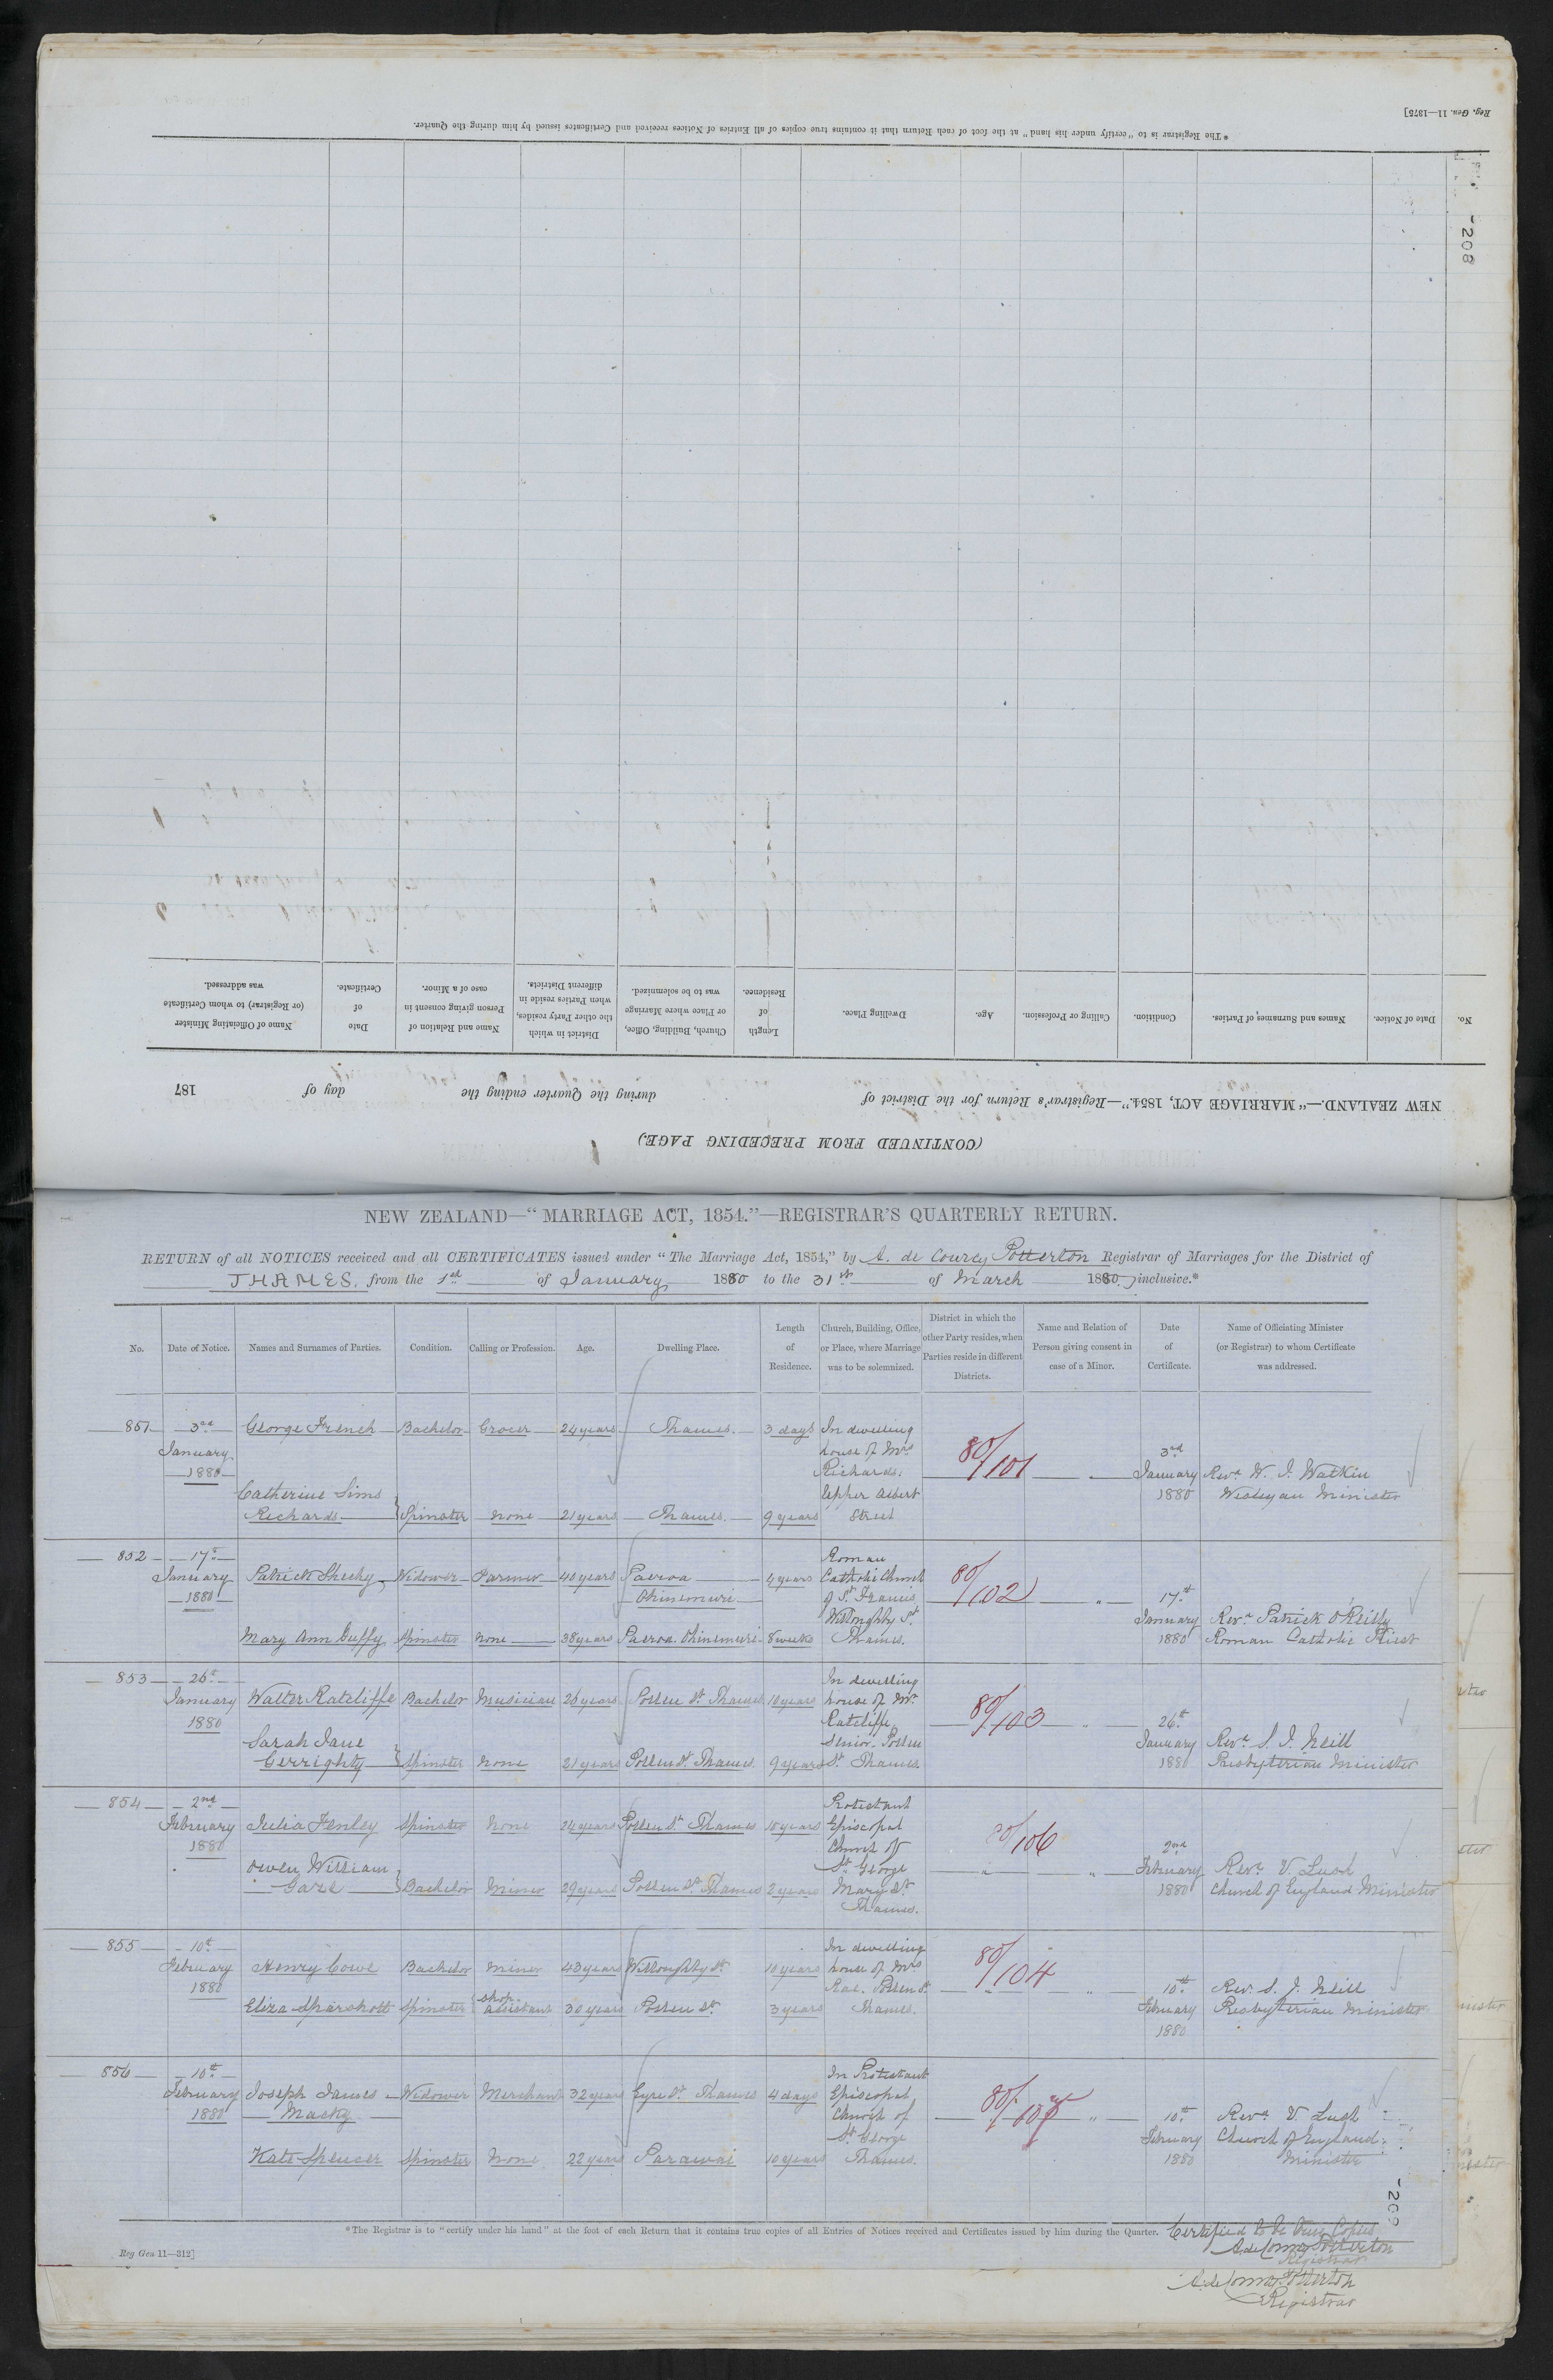 Reg. Gen. 11—1875]
*The Registrar is to "certify under his hand" at the foot of each Return that it contains true copies of all Entries of Notices received and Certificates issued by him during the Quarter.
208
(CONTINUED FROM PRECEDING PAGE.)
NEW ZEALAND.—"MARRIAGE ACT, 1854."—Registrar's Return for the District of during the Quarter ending the day of 187
No. Date of Notice. Names and Surnames of Parties. Condition. Calling or Profession. Age. Dwelling Place. Length of Residence. Church, Building, Office, or Place where Marriage was to be solemnized. District in which the other Party resides, when Parties reside in different Districts. Name and Relation of Person giving consent in case of a Minor. Date of Certificate. Name of Officiating Minister (or Registrar) to whom Certificate was addressed.
NEW ZEALAND—"MARRIAGE ACT, 1854."—REGISTRAR'S QUARTERLY RETURN.
RETURN of all NOTICES received and all CERTIFICATES issued under "The Marriage Act, 1854," by A. de Courcy Potterton Registrar of Marriages for the District of
THAMES. from the 1st of January 1880 to the 31st of March 1880, inclusive.*
No. Date of Notice. Names and Surnames of Parties. Condition. Calling or Profession. Age. Dwelling Place. Length of Residence. Church, Building, Office, or Place, where Marriage was to be solemnized. District in which the other Party resides, when Parties reside in different Districts. Name and Relation of Person giving consent in case of a Minor. Date of Certificate. Name of Officiating Minister (or Registrar) to whom Certificate was addressed.
851 3rd George French Bachelor Grocer 24 years Thames. 3 days In dwelling
January house of Mrs 80/101 3rd
1880 Richards. January Revd W. J. Watkin
Catherine Sims Upper Albert 1880 Wesleyan Minister
Richards Spinster none 21 years Thames. 9 years Street
852 17th Roman
January Patrick Sheehy Widower Farmer 40 years Paeroa 4 years Catholic Church 80/102
1880 Ohinemuri of St. Francis 17th
Willoughby St. January Revd Patrick O'Reilly
Mary Ann Guffy Spinster none 38 years Paeroa. Ohinemuri 8 weeks Thames. 1880 Roman Catholic Priest
853 26th In dwelling
January Walter Ratcliffe Bachelor Musician 26 years Pollen St. Thames 10 years house of Mr 80/103
1880 Ratcliffe 26th
Sarah Jane Senior. Pollen January Revd S. J. Neill
Gerrighty Spinster none 21 years Pollen St. Thames 9 years St. Thames. 1880 Presbyterian Minister
854 2nd Protestant
February Julia Henley Spinster None 24 years Pollen St. Thames 10 years Episcopal 80/106
1880 Church of 2nd
Owen William St. George February Revd V. Lush
Gaze Bachelor Miner 29 years Pollen St. Thames 2 years Mary St. 1880 Church of England Minister
Thames.
855 10th In dwelling
February Henry Cowe Bachelor Miner 43 years Willoughby St 10 years house of Mrs 80/104
1880 Rae. Pollen St. 10th Rev. S. J. Neill
Eliza Sparshott Spinster shop assistant 30 years Pollen St. 3 years Thames. February Presbyterian Minister
1880
856 10th In Protestant
February Joseph James Widower Merchant 32 years Eyre St. Thames 4 days Episcopal
1880 Macky Church of 10th Revd V. Lush
St. George February Church of England
Kate Spencer Spinster None 22 years Parawai 10 years Thames. 1880 Minister
209
*The Registrar is to "certify under his hand" at the foot of each Return that it contains true copies of all Entries of Notices received and Certificates issued by him during the Quarter.
Certified to be true Copies
A. de Courcy Potterton
Registrar
Reg Gen 11—312]
A. de Courcy Potterton
Registrar